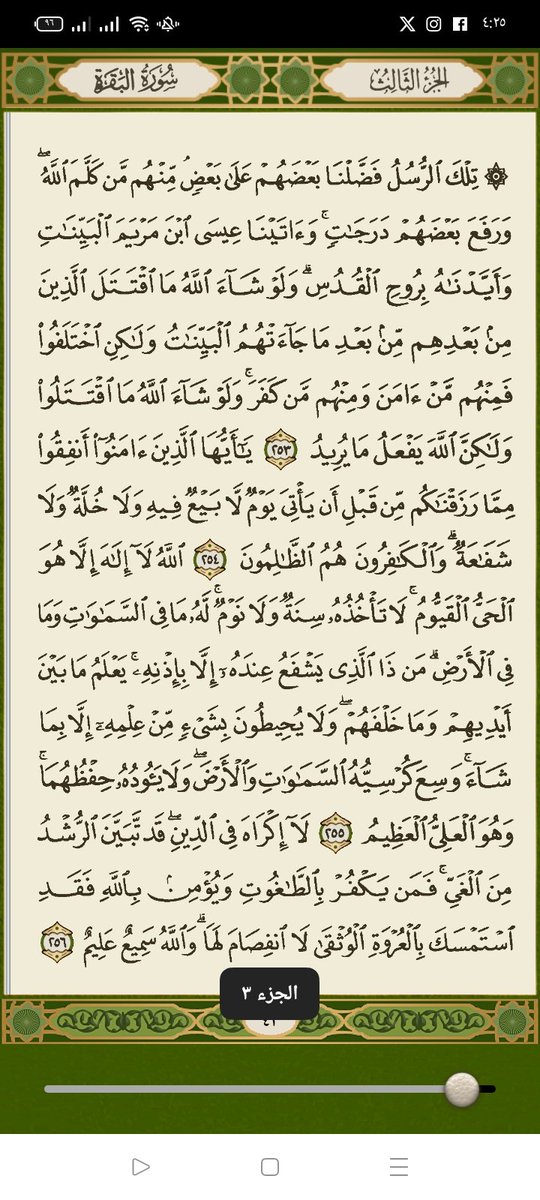 ٩٦
٤:٢٥
الجزء الثالث
سورة البقرة
۞ تِلْكَ ٱلرُّسُلُ فَضَّلْنَا بَعْضَهُمْ عَلَىٰ بَعْضٍۘ مِّنْهُم مَّن كَلَّمَ ٱللَّهُۖ
وَرَفَعَ بَعْضَهُمْ دَرَجَٰتٍۚ وَءَاتَيْنَا عِيسَى ٱبْنَ مَرْيَمَ ٱلْبَيِّنَٰتِ
وَأَيَّدْنَٰهُ بِرُوحِ ٱلْقُدُسِۗ وَلَوْ شَآءَ ٱللَّهُ مَا ٱقْتَتَلَ ٱلَّذِينَ
مِنۢ بَعْدِهِم مِّنۢ بَعْدِ مَا جَآءَتْهُمُ ٱلْبَيِّنَٰتُ وَلَٰكِنِ ٱخْتَلَفُوا۟
فَمِنْهُم مَّنْ ءَامَنَ وَمِنْهُم مَّن كَفَرَۚ وَلَوْ شَآءَ ٱللَّهُ مَا ٱقْتَتَلُوا۟
وَلَٰكِنَّ ٱللَّهَ يَفْعَلُ مَا يُرِيدُ ٢٥٣ يَٰٓأَيُّهَا ٱلَّذِينَ ءَامَنُوٓا۟ أَنفِقُوا۟
مِمَّا رَزَقْنَٰكُم مِّن قَبْلِ أَن يَأْتِىَ يَوْمٌ لَّا بَيْعٌ فِيهِ وَلَا خُلَّةٌ وَلَا
شَفَٰعَةٌۗ وَٱلْكَٰفِرُونَ هُمُ ٱلظَّٰلِمُونَ ٢٥٤ ٱللَّهُ لَآ إِلَٰهَ إِلَّا هُوَ
ٱلْحَىُّ ٱلْقَيُّومُۚ لَا تَأْخُذُهُۥ سِنَةٌ وَلَا نَوْمٌۚ لَّهُۥ مَا فِى ٱلسَّمَٰوَٰتِ وَمَا
فِى ٱلْأَرْضِۗ مَن ذَا ٱلَّذِى يَشْفَعُ عِندَهُۥٓ إِلَّا بِإِذْنِهِۦۚ يَعْلَمُ مَا بَيْنَ
أَيْدِيهِمْ وَمَا خَلْفَهُمْۖ وَلَا يُحِيطُونَ بِشَىْءٍ مِّنْ عِلْمِهِۦٓ إِلَّا بِمَا
شَآءَۚ وَسِعَ كُرْسِيُّهُ ٱلسَّمَٰوَٰتِ وَٱلْأَرْضَۖ وَلَا يَـُٔودُهُۥ حِفْظُهُمَاۚ
وَهُوَ ٱلْعَلِىُّ ٱلْعَظِيمُ ٢٥٥ لَآ إِكْرَاهَ فِى ٱلدِّينِۖ قَد تَّبَيَّنَ ٱلرُّشْدُ
مِنَ ٱلْغَىِّۚ فَمَن يَكْفُرْ بِٱلطَّٰغُوتِ وَيُؤْمِنۢ بِٱللَّهِ فَقَدِ
ٱسْتَمْسَكَ بِٱلْعُرْوَةِ ٱلْوُثْقَىٰ لَا ٱنفِصَامَ لَهَاۗ وَٱللَّهُ سَمِيعٌ عَلِيمٌ ٢٥٦
الجزء ٣